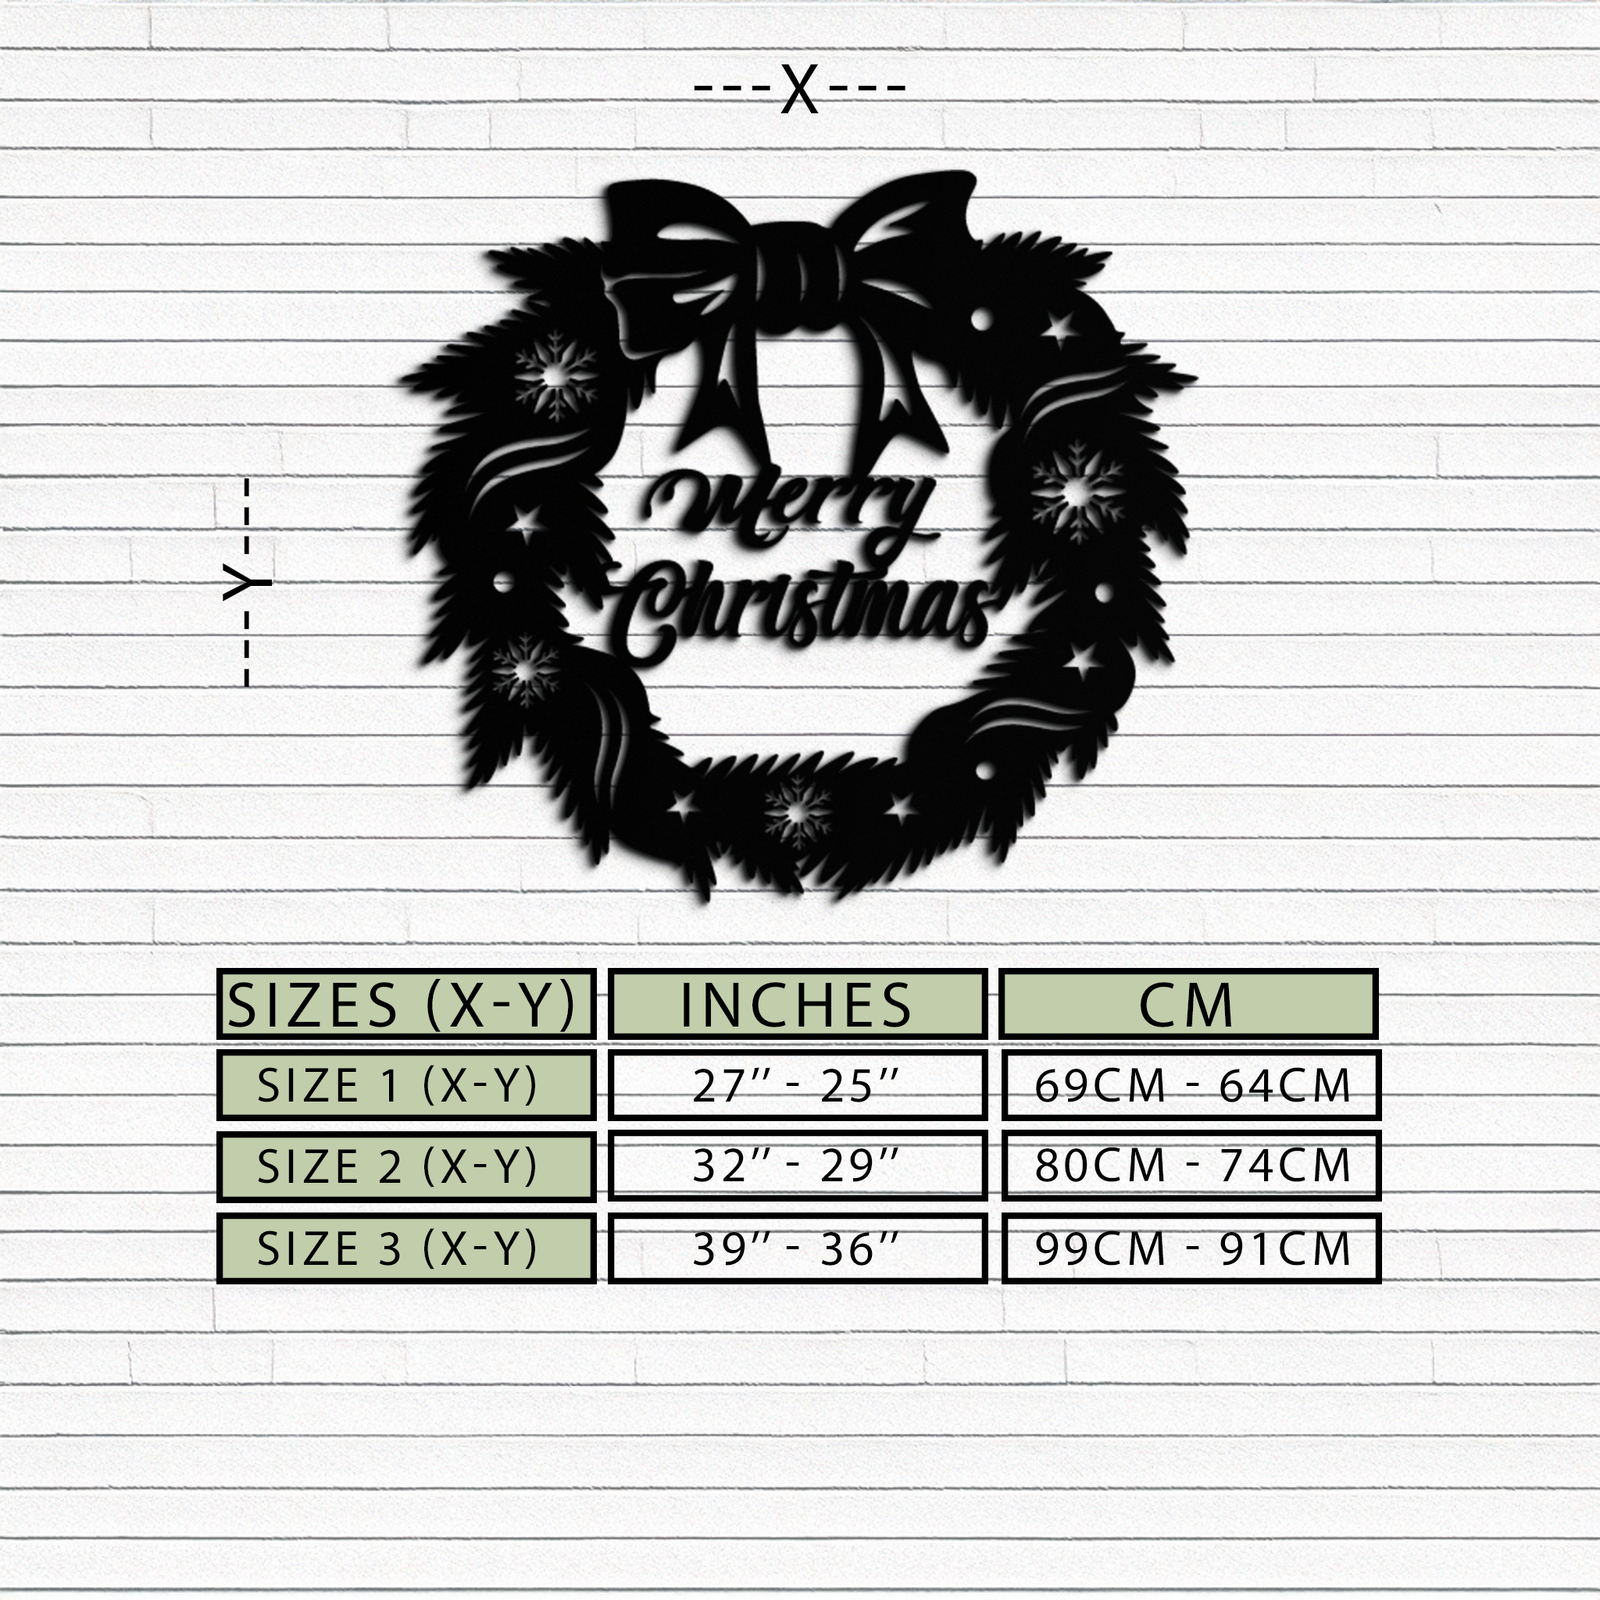 ---X---
Merry
Christmas
---Y---
SIZES (X-Y) INCHES CM
SIZE 1 (X-Y) 27’’ - 25’’ 69CM - 64CM
SIZE 2 (X-Y) 32’’ - 29’’ 80CM - 74CM
SIZE 3 (X-Y) 39’’ - 36’’ 99CM - 91CM